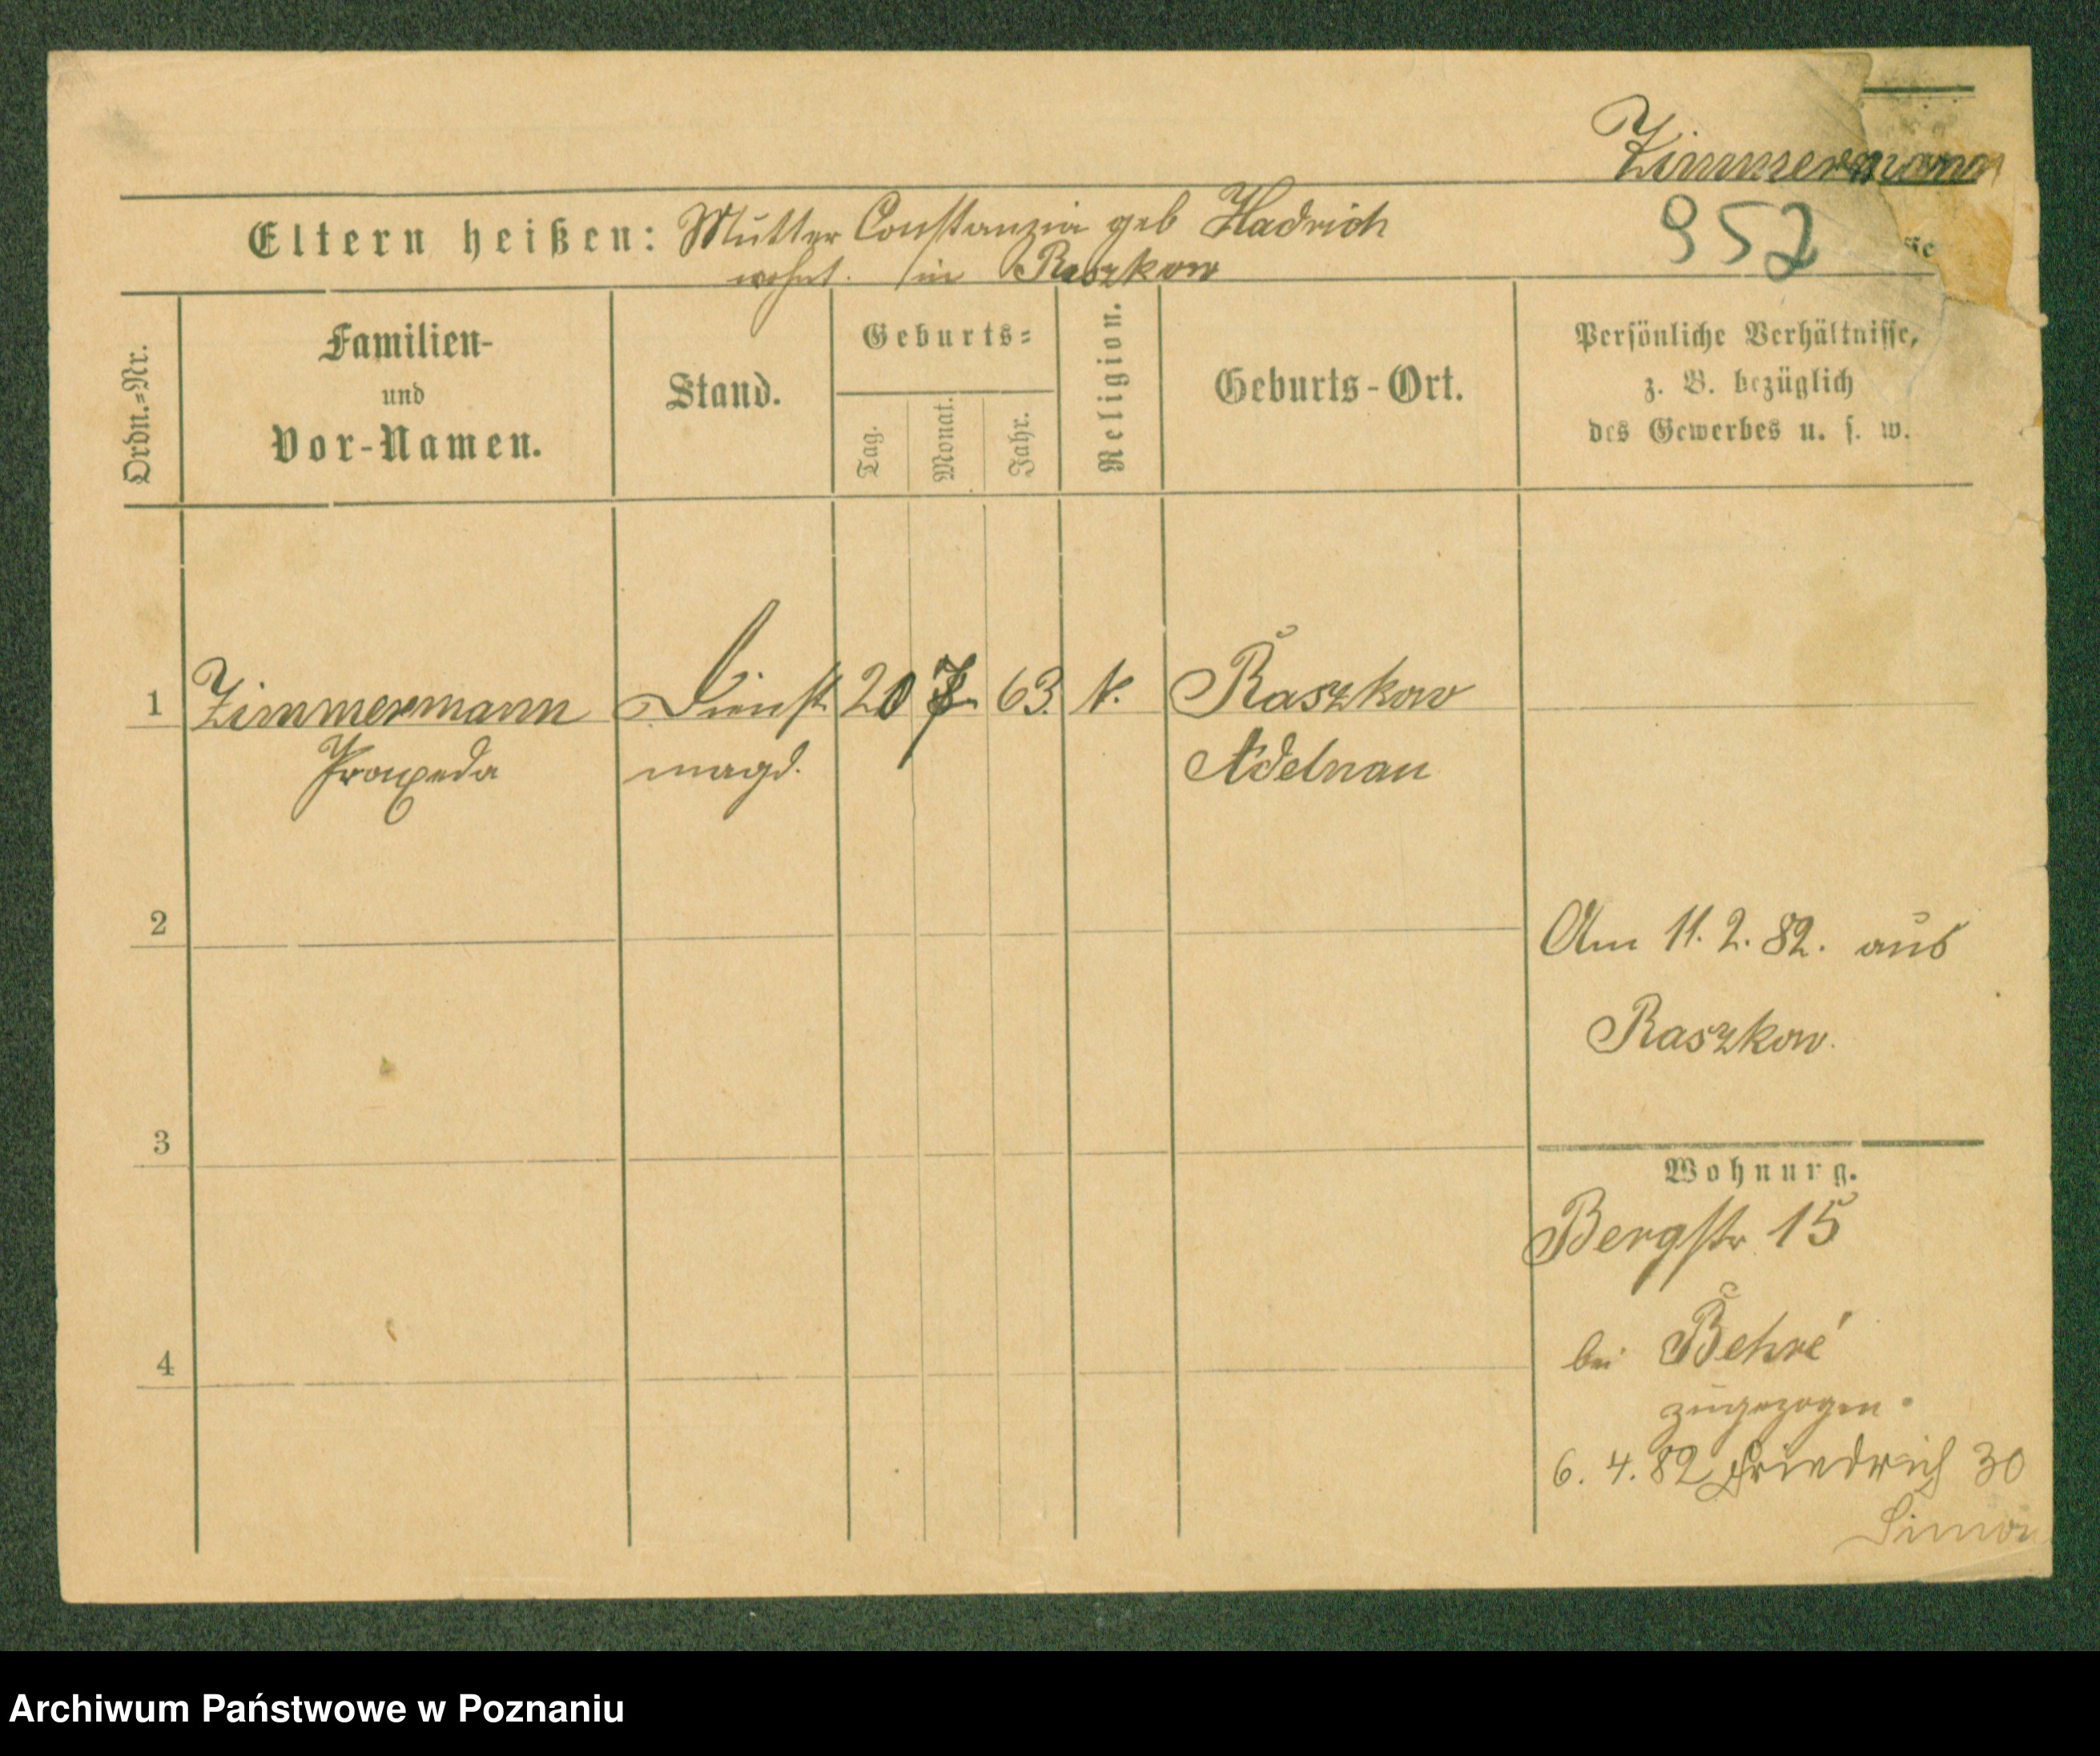 Zimmermann
952
Eltern heißen: Mutter Constanzia geb Hadrich
wohnt. in Raszkow
Ordn.-Nr.
Familien-
und
Vor-Namen.
Stand.
Geburts-
Tag.
Monat.
Jahr.
Religion.
Geburts-Ort.
Persönliche Verhältnisse,
z. B. bezüglich
des Gewerbes u. s. w.
1 Zimmermann Dienst 20 7 63. k. Raszkow
Praxeda magd. Adelnau
2
Am 11. 2. 82. aus
Raszkow.
3
Wohnung.
Bergstr 15
bei Behré
4
zugezogen.
6. 4. 82 Friedrich 30
Simon
Archiwum Państwowe w Poznaniu